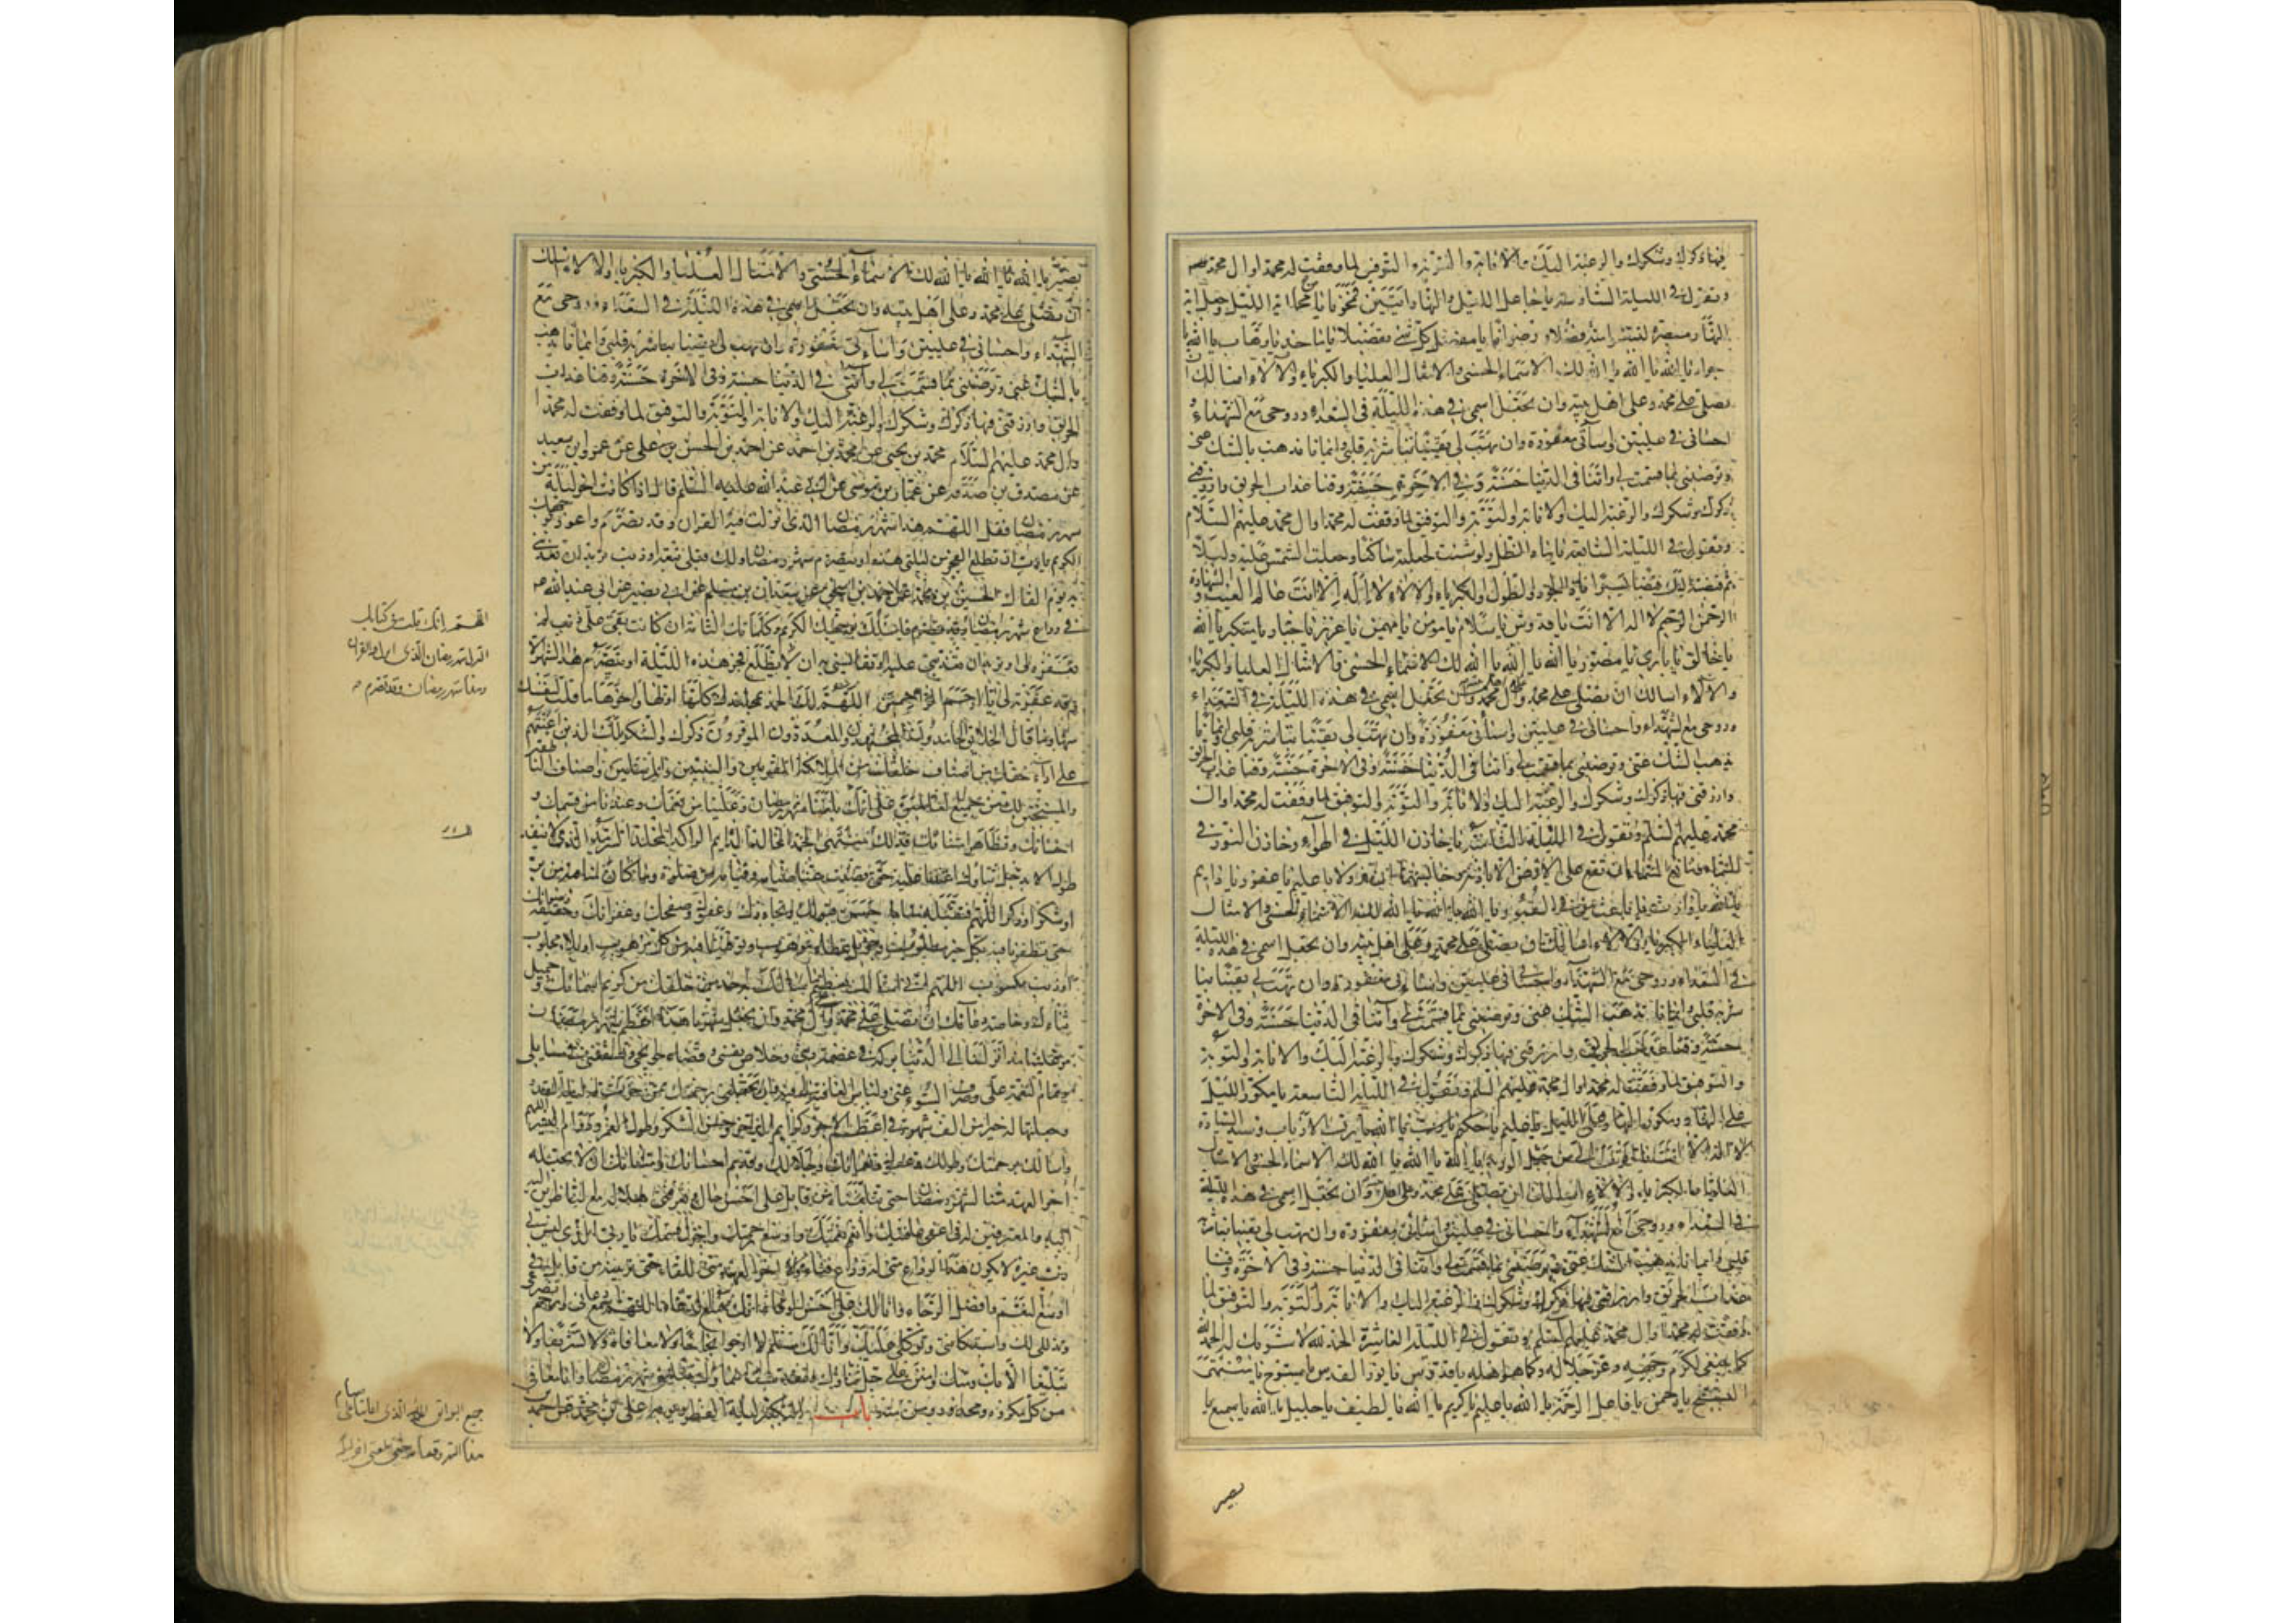 فيها ذكرك وشكرك والرغبة اليك والانابة والتوبة والتوفيق لما وفقت له محمدا وال محمد
وتقول في الليلة السادسة يا جاعل الليل والنهار ايتين يا من محا اية الليل وجعل اية
النهار مبصرة لتبتغوا فضلا منه ورضوانا يا مفصل كل شئ تفصيلا يا ماجد يا وهاب يا الله يا
جواد يا الله يا الله يا الله لك الاسماء الحسنى والامثال العليا والكبرياء والآلاء اسالك ان
تصلي على محمد وعلى اهل بيته وان تجعل اسمي في هذه الليلة في السعداء وروحي مع الشهداء و
احساني في عليين واسائتي مغفورة وان تهب لي يقينا تباشر به قلبي وايمانا يذهب بالشك عني
وترضيني بما قسمت لي واتنا في الدنيا حسنة وفي الاخرة حسنة وقنا عذاب الحريق وارزقني
ذكرك وشكرك والرغبة اليك والانابة والتوبة والتوفيق لما وفقت له محمدا وال محمد عليهم السلام
وتقول في الليلة السابعة يا ماد الظل ولو شئت لجعلته ساكنا وجعلت الشمس عليه دليلا
ثم قبضته اليك قبضا يسيرا يا ذا الجود والطول والكبرياء والآلاء لا اله الا انت عالم الغيب والشهادة
الرحمن الرحيم لا اله الا انت يا قدوس يا سلام يا مومن يا مهيمن يا عزيز يا جبار يا متكبر يا الله
يا خالق يا باري يا مصور يا الله يا الله يا الله لك الاسماء الحسنى والامثال العليا والكبرياء
والآلاء اسالك ان تصلي على محمد وال محمد وان تجعل اسمي في هذه الليلة في السعداء
وروحي مع الشهداء واحساني في عليين واسائتي مغفورة وان تهب لي يقينا تباشر به قلبي وايمانا
يذهب الشك عني وترضيني بما قسمت لي واتنا في الدنيا حسنة وفي الاخرة حسنة وقنا عذاب الحريق
وارزقني فيها ذكرك وشكرك والرغبة اليك والانابة والتوبة والتوفيق لما وفقت له محمدا وال
محمد عليهم السلم وتقول في الليلة الثامنة يا خازن الليل في الهواء وخازن النور في
السماء ومانع السماء ان تقع على الارض الا باذنه وحابسهما ان تزولا يا عليم يا غفور يا دايم
يا الله يا وارث يا باعث من في القبور يا الله يا الله يا الله لك الاسماء الحسنى والامثال
العلياء والكبرياء والآلاء اسالك ان تصلي على محمد وعلى اهل بيته وان تجعل اسمي في هذه الليلة
في السعداء وروحي مع الشهداء واحساني في عليين واسائتي مغفورة وان تهب لي يقينا تبا
شر به قلبي وايمانا يذهب الشك عني وترضيني بما قسمت لي وآتنا في الدنيا حسنة وفي الاخرة
حسنة وقنا عذاب الحريق وارزقني فيها ذكرك وشكرك والرغبة اليك والانابة والتوبة
والتوفيق لما وفقت له محمدا وال محمد عليهم السلم وتقول في الليلة التاسعة يا مكور الليل
على النهار ومكور النهار على الليل يا عليم يا حكيم يا الله يا رب الارباب وسيد السادة
لا اله الا انت يا اقرب الي من حبل الوريد يا الله يا الله يا الله لك الاسماء الحسنى والامثال
العليا والكبرياء والآلاء اسالك ان تصلي على محمد وان تجعل اسمي في هذه الليلة
في السعداء وروحي مع الشهداء واحساني في عليين واسائتي مغفورة وان تهب لي يقينا تباشر به
قلبي وايمانا يذهب الشك عني وترضيني بما قسمت لي وآتنا في الدنيا حسنة وفي الاخرة وقنا
عذاب الحريق وارزقني فيها ذكرك وشكرك والرغبة اليك والانابة والتوبة والتوفيق لما
وفقت له محمدا وال محمد عليهم السلم وتقول في الليلة العاشرة الحمد لله لا شريك له الحمد لله
كما ينبغي لكرم وجهه وعز جلاله وكما هو اهله يا قدوس يا نور القدس يا سبوح يا منتهى
التسبيح يا رحمن يا فاعل الرحمة يا الله يا عليم يا كريم يا الله يا لطيف يا جليل يا الله يا سميع يا
بصير
بصير يا الله يا الله يا الله لك الاسماء الحسنى والامثال العليا والكبرياء والآلاء اسالك
ان تصلي على محمد وعلى اهل بيته وان تجعل اسمي في هذه الليلة في السعداء وروحي مع
الشهداء واحساني في عليين واسائتي مغفورة وان تهب لي يقينا تباشر به قلبي وايمانا يذهب
بالشك عني وترضيني بما قسمت لي وآتني في الدنيا حسنة وفي الاخرة حسنة وقنا عذاب
الحريق وارزقني فيها ذكرك وشكرك والرغبة اليك والانابة والتوبة والتوفيق لما وفقت له محمدا
وال محمد عليهم السلام محمد بن يحيى عن محمد بن احمد عن احمد بن الحسن بن علي عن عمرو بن سعيد
عن مصدق بن صدقة عن عمار بن موسى عن ابي عبد الله عليه السلم قال اذا كانت اخر ليلة من
شهر رمضان فقل اللهم هذا شهر رمضان الذي انزلت فيه القران وقد تصرم واعوذ بوجهك
الكريم يا رب ان تطلع الفجر من ليلتي هذه او يتصرم شهر رمضان ولك قبلي تبعة او ذنب تريد ان تعذبني
به يوم القاك الحسين بن محمد عن احمد بن اسحق عن سعدان بن مسلم عن ابي بصير عن ابي عبد الله
في وداع شهر رمضان وقد تصرم فاسئلك بوجهك الكريم وكلماتك التامة ان كانت بقي علي ذنب لم
تغفره لي او تريد ان تعذبني عليه او تقايسني به ان لا يطلع فجر هذه الليلة او يتصرم هذا الشهر الا
وقد غفرته لي يا ارحم الراحمين اللهم لك الحمد بمحامدك كلها اولها واخرها ما قلت لنفسك
منها وما قال الخلائق الحامدون المجتهدون المعدودون الموقرون ذكرك والشكر لك الذين اعنتهم
على اداء حقك من اصناف خلقك من الملائكة المقربين والنبيين والمرسلين واصناف الناطقين
والمسبحين لك من جميع العالمين على انك بلغتنا شهر رمضان وعلينا من نعمك وعندنا من قسمك و
احسانك وتظاهر امتنانك فبذلك لك منتهى الحمد الخالد الدايم الراكد المخلد السرمد الذي لا ينفد
طول الابد جل ثناؤك اعنتنا عليه حتى قضيت عنا صيامه وقيامه من صلوة وما كان منا فيه من بر
او شكر او ذكر اللهم فتقبله منا باحسن قبولك وتجاوزك وعفوك وصفحك وغفرانك وحقيقة رضوانك
حتى تظفرنا فيه بكل خير مطلوب وجزيل عطاء موهوب وتوقينا فيه من كل مرهوب او بلاء مجلوب
او ذنب مكسوب اللهم اني اسالك بعظيم ما سالك به احد من خلقك من كريم اسمائك وجميل
ثنائك وخاصة دعائك ان تصلي على محمد وال محمد وان تجعل شهرنا هذا اعظم شهر رمضان
مر علينا منذ انزلتنا الى الدنيا بركة في عصمة ديني وخلاص نفسي وقضاء حوايجي وتشفعني في مسايلي
وتمام النعمة علي وصرف السوء عني ولباس العافية لي فيه وان تجعلني برحمتك ممن خرت له ليلة القدر
وجعلتها له خيرا من الف شهر في اعظم الاجر وكرايم الذخر وحسن الشكر وطول العمر ودوام اليسر اللهم
واسالك برحمتك وطولك وعفوك ونعمائك وجلالك وقديم احسانك وامتنانك ان لا تجعله
اخر العهد منا لشهر رمضان حتى تبلغناه من قابل على احسن حال وتعرفني هلاله مع الناظرين اليه
والمعترفين له في اعفى عافيتك وانعم نعمتك واوسع رحمتك واجزل قسمك يا ربي الذي ليس لي
رب غيره لا يكون هذا الوداع مني له وداع فناء ولا اخر العهد مني للقاء حتى ترينيه من قابل في
اوسع النعم وافضل الرجاء وانا لك على احسن الوفاء انك سميع الدعاء اللهم اسمع دعائي وارحم تضرعي
وتذللي لك واستكانتي وتوكلي عليك وانا لك مسلم لا ارجوا نجاحا ولا معافاة ولا تشريفا ولا
تبليغا الا بك ومنك وامنن علي جل ثناؤك وتقدست اسماؤك بتبليغي شهر رمضان وانا معافى
من كل مكروه ومحذور ومن باب التكبير ليلة الفطر ويومه علي بن محمد عن احمد
اللهم انك قلت في كتابك
المنزل شهر رمضان الذي انزل فيه القران
وهذا شهر رمضان وقد تصرم